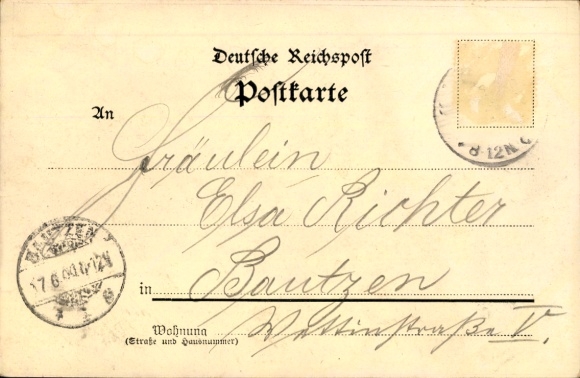 Deutsche Reichspost
Postkarte
An
Fräulein
Elsa Richter
in Bautzen
Wohnung
(Straße und Hausnummer)
Wettinstraße V.
BAUTZEN
8-12N